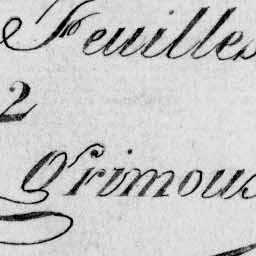 Feuilles
2
Grimous